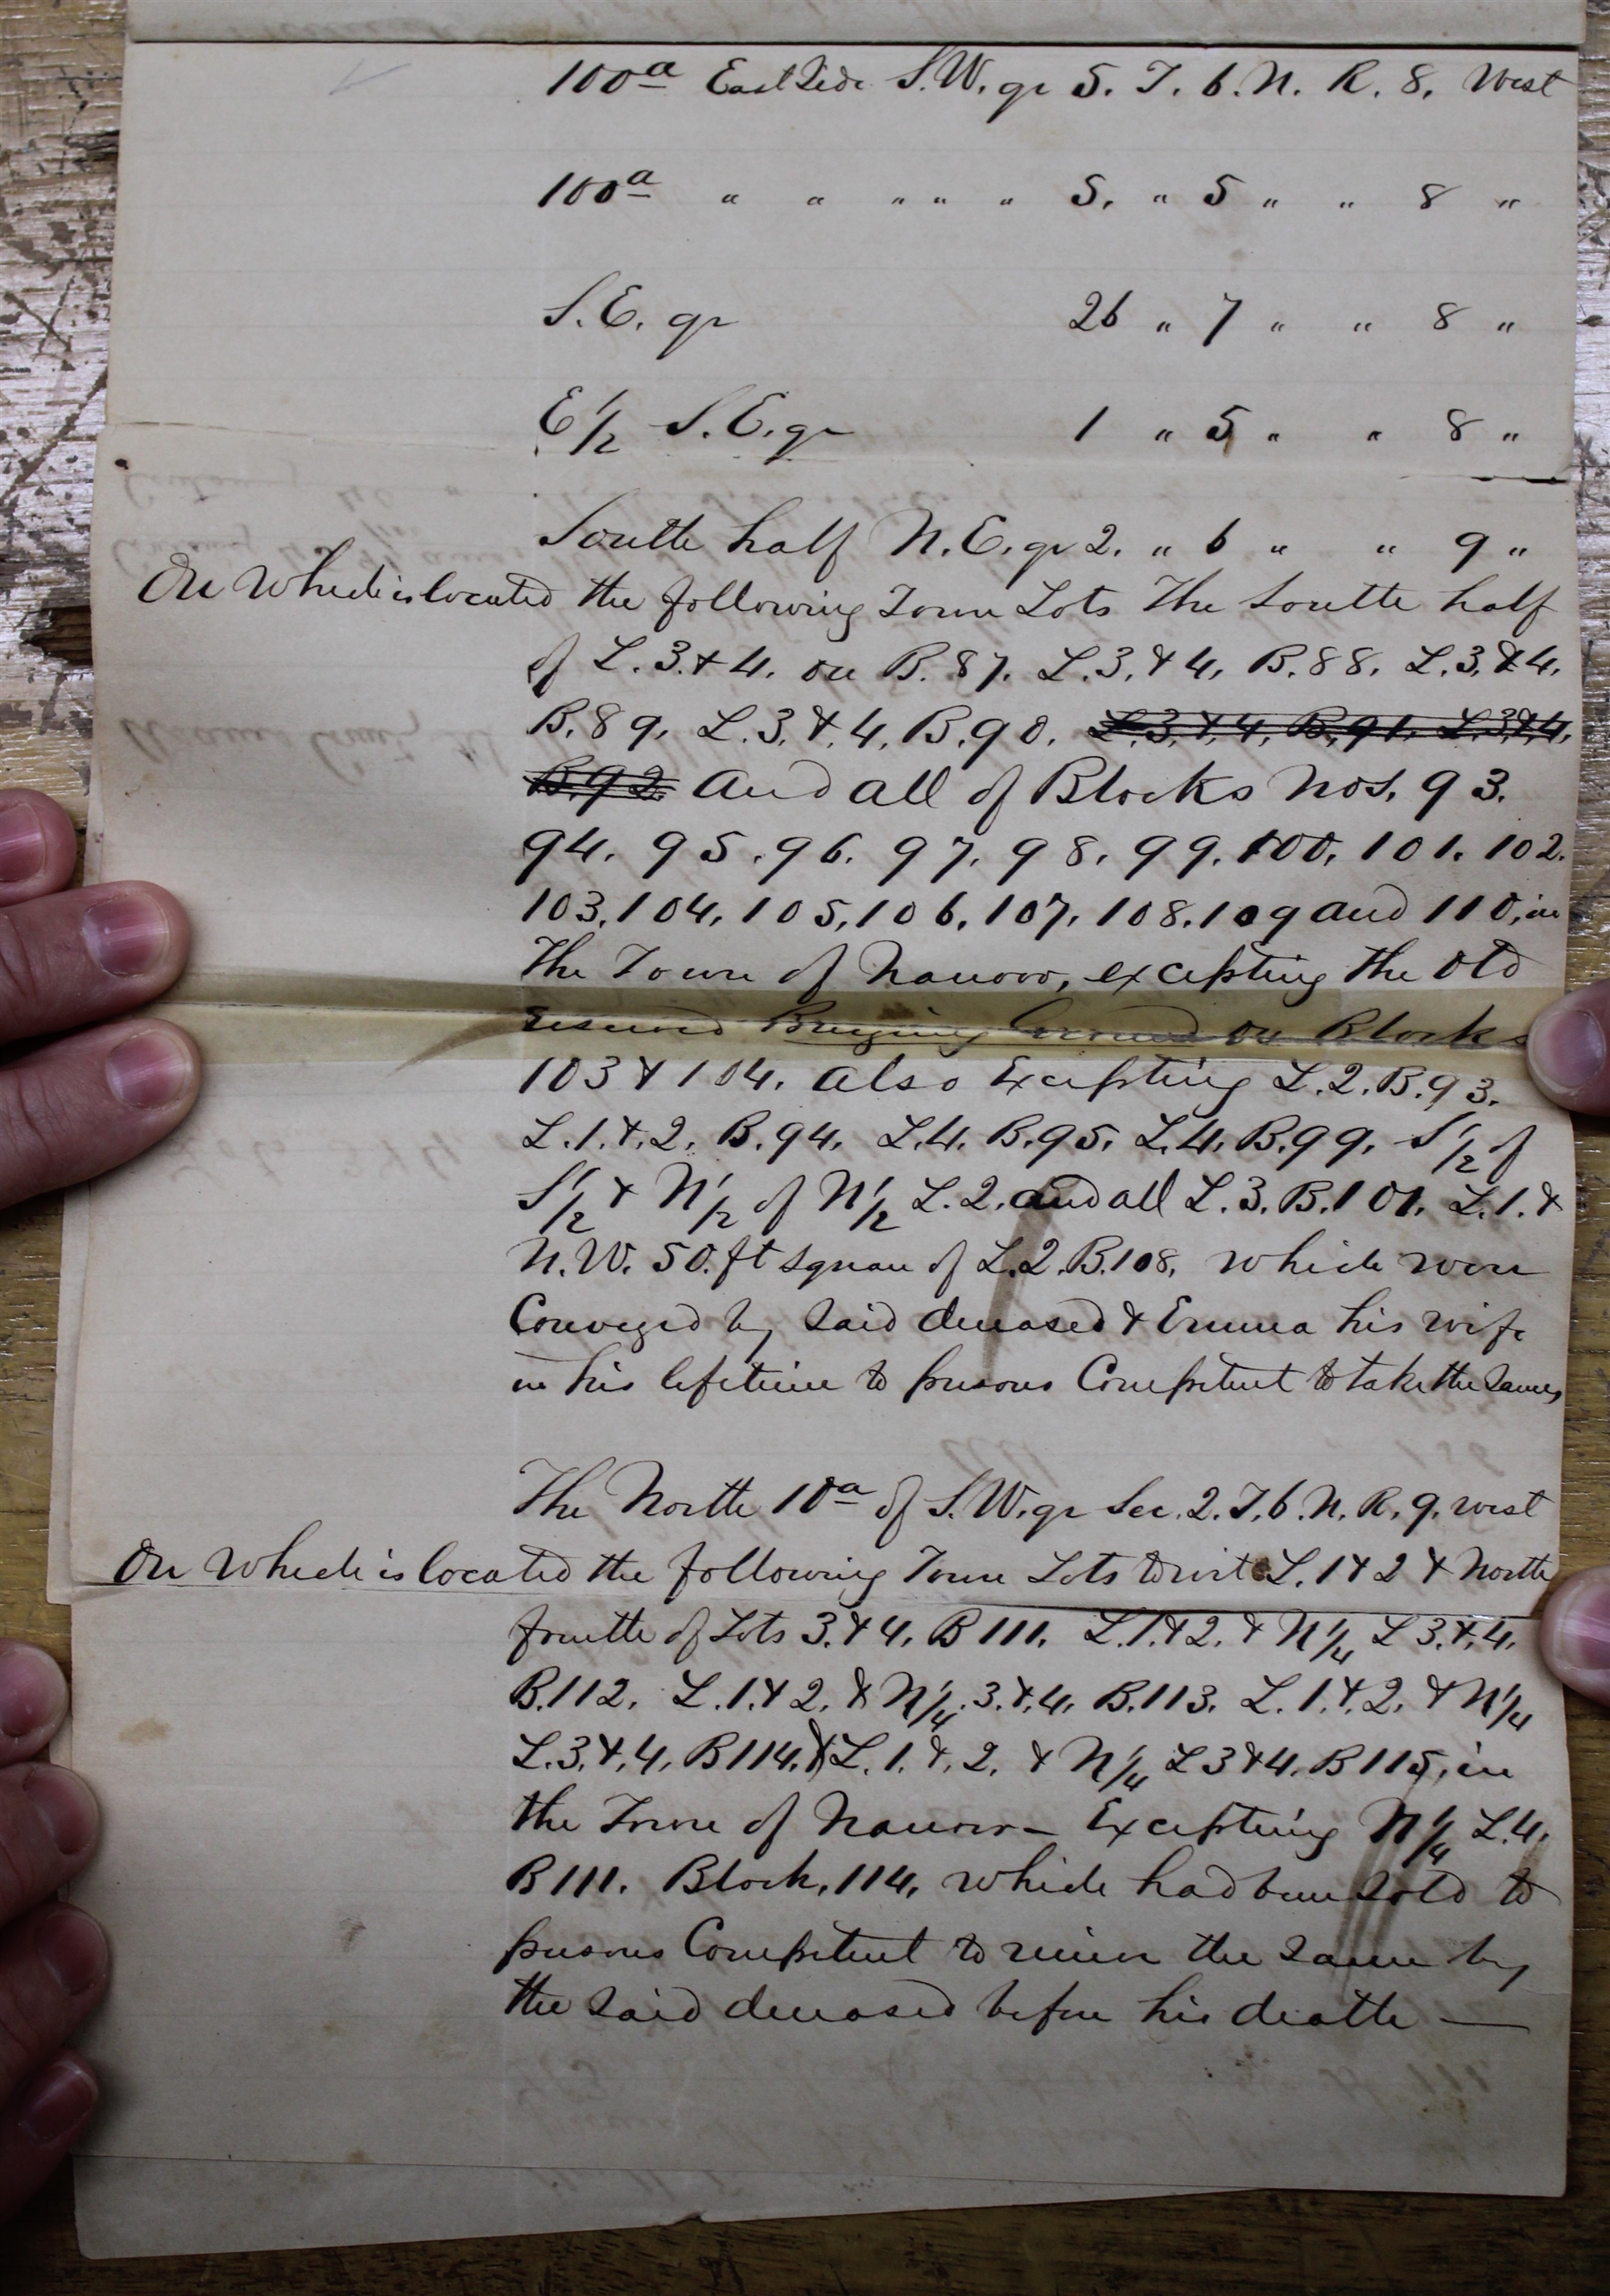 100a East Side S.W. qr 5. T. 6. N. R. 8. West
100a " " " " " 5. " 5 " " 8 "
S.E. qr 26 " 7 " " 8 "
E 1/2 S.E. qr 1 " 5 " " 8 "
South half N.E. qr 2. " 6 " " 9 "
On Which is located the following Town Lots The South half
of L. 3. & 4. on B. 87. L. 3. & 4, B. 88. L. 3. & 4.
B. 89. L. 3. & 4. B. 90. L. 3. & 4. B. 91. L. 3 & 4.
B. 92. and all of Blocks Nos. 93.
94. 95. 96. 97. 98. 99. 100. 101. 102.
103. 104. 105. 106. 107. 108. 109 and 110, in
the Town of Nauvoo, excepting the old
Burying Ground on Blocks
103 & 104. also Excepting L. 2. B. 93.
L. 1. & 2. B. 94. L. 4. B. 95. L. 4. B. 99. S 1/2 of
S 1/2 & N 1/2 of N 1/2 L. 2. and all L. 3. B. 101. L. 1. &
N.W. 50. ft square of L. 2. B. 108. which were
Conveyed by said deceased & Emma his wife
in his lifetime to persons Competent to take the same,
The North 10a of S.W. qr Sec. 2. T. 6. N. R. 9. west
On Which is located the following Town Lots towit L. 1 & 2 & North
fourth of Lots 3. & 4. B 111. L. 1. & 2. & N 1/4 L 3. & 4.
B. 112. L. 1. & 2. & N 1/4. 3. & 4. B. 113. L. 1. & 2. & N 1/4
L. 3. & 4. B 114. & L. 1. & 2. & N 1/4 L 3 & 4. B 115, in
the Town of Nauvoo - Excepting N 1/4 L. 4.
B 111. Block. 114, which had been sold to
persons Competent to receive the same by
the said deceased before his death —